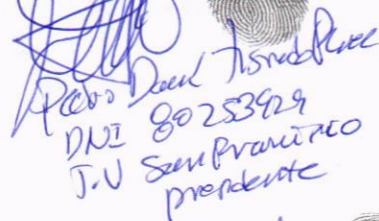 Pedro David Tisnado Perez
DNI 80253929
J.V San Francisco
presidente